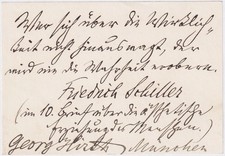 Wer sich über die Wirklich-
keit nicht hinauswagt, der
wird nie die Wahrheit erobern.
Friedrich Schiller
(im 10. Brief über die ästhetische
Erziehung des Menschen.)
Georg Hirth München